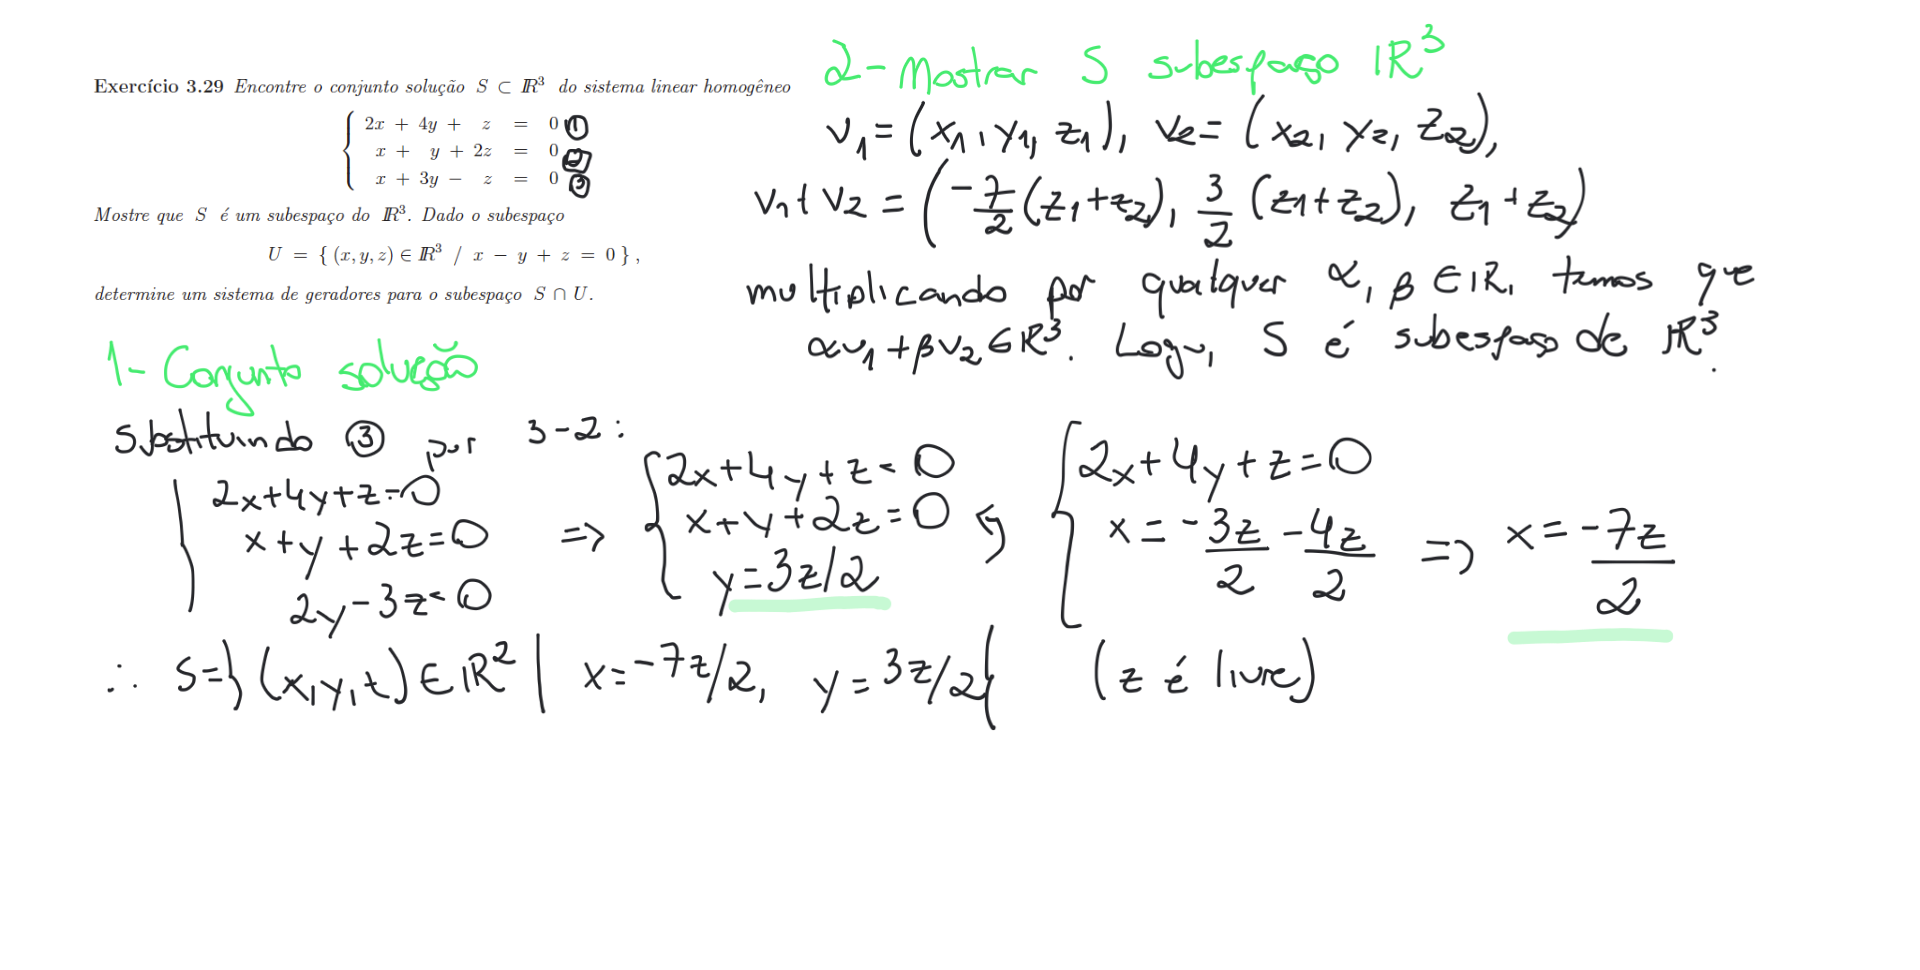 Exercício 3.29 Encontre o conjunto solução S ⊂ ℝ³ do sistema linear homogêneo
2x + 4y + z = 0 ①
x + y + 2z = 0 ②
x + 3y − z = 0 ③
Mostre que S é um subespaço do ℝ³. Dado o subespaço
U = { (x, y, z) ∈ ℝ³ / x − y + z = 0 } ,
determine um sistema de geradores para o subespaço S ∩ U.
1- Conjunto solução
Substituindo ③ por 3-2:
2x+4y+z=0
x+y+2z=0
2y-3z=0
=>
2x+4y+z=0
x+y+2z=0
y=3z/2
↪
2x+4y+z=0
x = -3z/2 - 4z/2 => x = -7z/2
∴ S={(x,y,t) ∈ IR² | x=-7z/2, y=3z/2} (z é livre)
2- Mostrar S subespaço IR³
v1=(x1,y1,z1), v2=(x2,y2,z2),
v1+v2=(-7/2(z1+z2), 3/2(z1+z2), z1+z2)
multiplicando por qualquer α, β ∈ IR, temos que
αv1+βv2 ∈ IR³. Logo, S é subespaço de IR³.